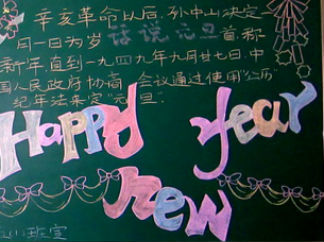 辛亥革命以后,孙中山决定
用一月一日为岁 话说元旦 首称
新年,直到一九四九年九月廿七日,中
国人民政府协商 会议通过使用"公历"
纪年法来定"元旦".
Happy year
new